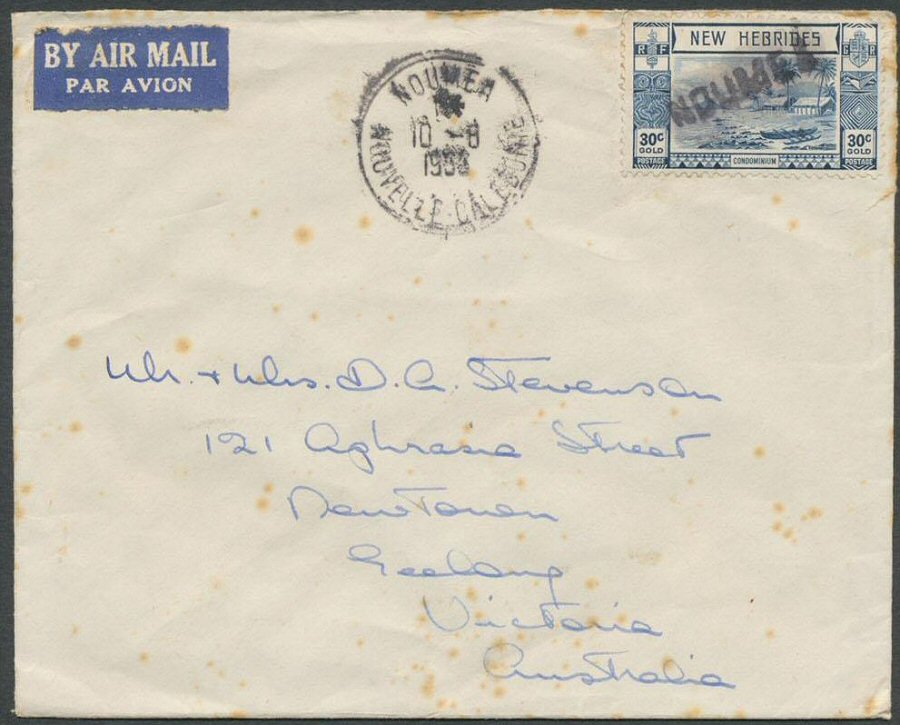 BY AIR MAIL
PAR AVION
NOUMEA
10 -8
NOUVELLE-CALEDONIE
RF
NEW HEBRIDES
GR
NOUMEA
30c
GOLD
POSTAGE
CONDOMINIUM
30c
GOLD
POSTAGE
Mr. + Mrs. D. G. Stevenson
121 Aphrasia Street
Newtown
Geelong
Victoria
Australia